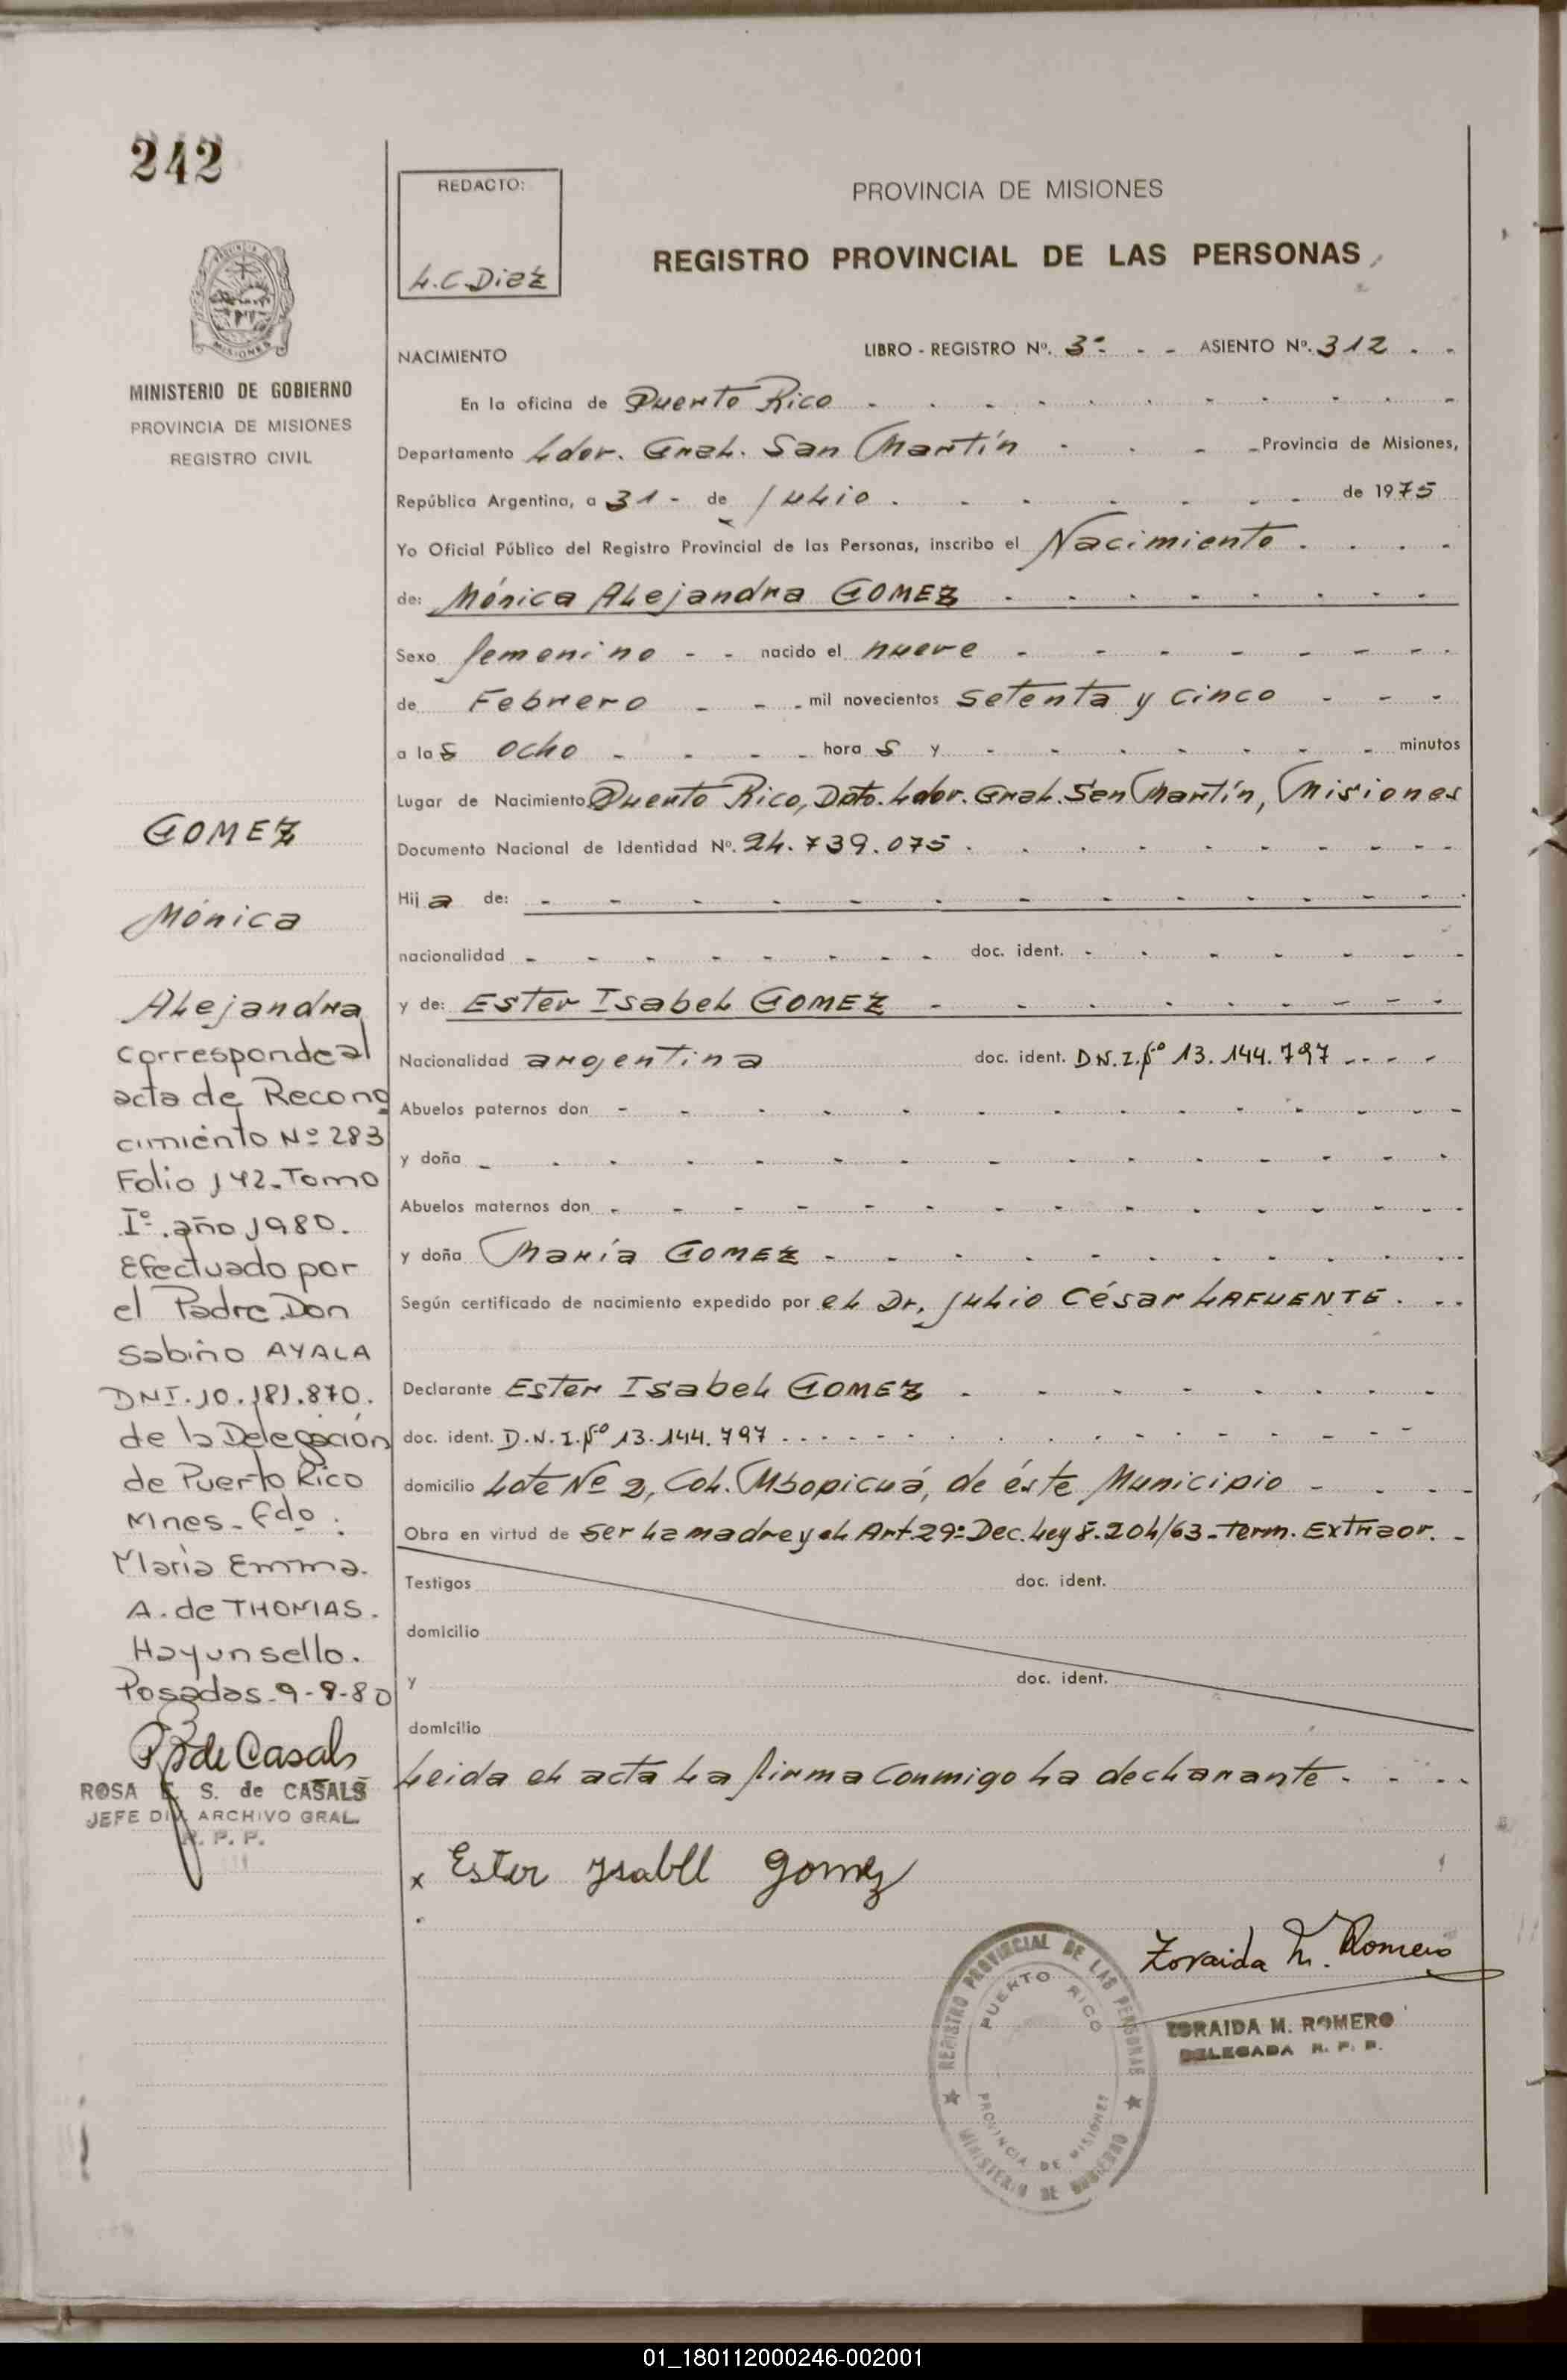 242
REDACTO:
L.C. Diez
PROVINCIA DE MISIONES
REGISTRO PROVINCIAL DE LAS PERSONAS
MISIONES
MINISTERIO DE GOBIERNO
PROVINCIA DE MISIONES
REGISTRO CIVIL
NACIMIENTO LIBRO - REGISTRO Nº. 3º - - ASIENTO Nº. 312 . -
En la oficina de Puerto Rico
Departamento Ldor. Gral. San Martín Provincia de Misiones,
República Argentina, a 31 - de Julio de 1975
Yo Oficial Público del Registro Provincial de las Personas, inscribo el Nacimiento
de: Mónica Alejandra GOMEZ
Sexo femenino - - nacido el nueve
de Febrero mil novecientos setenta y cinco
a las ocho horas y minutos
Lugar de Nacimiento Puerto Rico, Dpto. Ldor. Gral. San Martín, Misiones
Documento Nacional de Identidad Nº. 24.739.075
Hija de:
nacionalidad doc. ident.
y de: Ester Isabel GOMEZ
Nacionalidad argentina doc. ident. D.N.I. Nº 13.144.797
Abuelos paternos don
y doña
Abuelos maternos don
y doña María GOMEZ
Según certificado de nacimiento expedido por el Dr. Julio César LAFUENTE.
Declarante Ester Isabel GOMEZ
doc. ident. D.N.I. Nº 13.144.797
domicilio Lote Nº 2, Col. Mbopicuá, de éste Municipio
Obra en virtud de ser la madre y el Art. 29º Dec. Ley 8.204/63 - Term. Extraor.
Testigos doc. ident.
domicilio
y doc. ident.
domicilio
Leida el acta la firma conmigo la declarante
x Ester Ysabel Gomez
Zoraida M. Romero
ZORAIDA M. ROMERO
DELEGADA R. P. P.
REGISTRO PROVINCIAL DE LAS PERSONAS
PUERTO RICO
PROVINCIA DE MISIONES
MINISTERIO DE GOBIERNO
GOMEZ
Mónica
Alejandra
Corresponde al
acta de Recono
cimiento Nº 283
Folio 142. Tomo
Iº. año 1980.
Efectuado por
el Padre Don
Sabino AYALA
DNI. 10.181.870.
de la Delegación
de Puerto Rico
Mnes. Fdo:
María Emma.
A. de THOMAS.
Hay un sello.
Posadas 9-9-80
de Casals
ROSA E. S. de CASALS
JEFE DIV. ARCHIVO GRAL.
R. P. P.
01_180112000246-002001